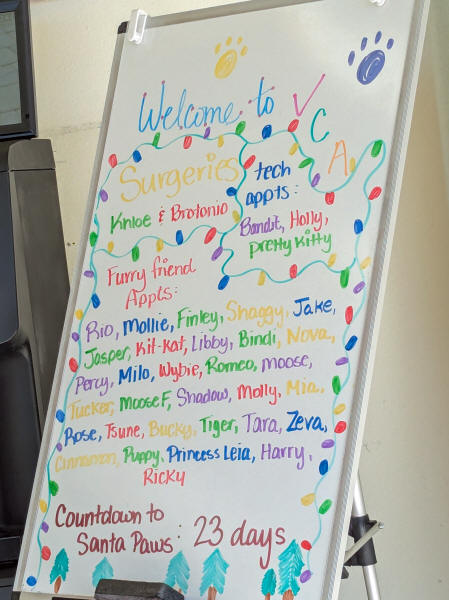 Welcome to VCA
Surgeries
Khloe & Brotonio
tech
appts:
Bandit, Holly,
pretty Kitty
Furry friend
Appts:
Rio, Mollie, Finley, Shaggy, Jake,
Jasper, Kit-Kat, Libby, Bindi, Nova,
Percy, Milo, Wybie, Romeo, moose,
Tucker, Moose F, Shadow, Molly, Mia,
Rose, Tsune, Bucky, Tiger, Tara, Zeva,
Cinnamon, Puppy, Princess Leia, Harry,
Ricky
Countdown to
Santa Paws: 23 days